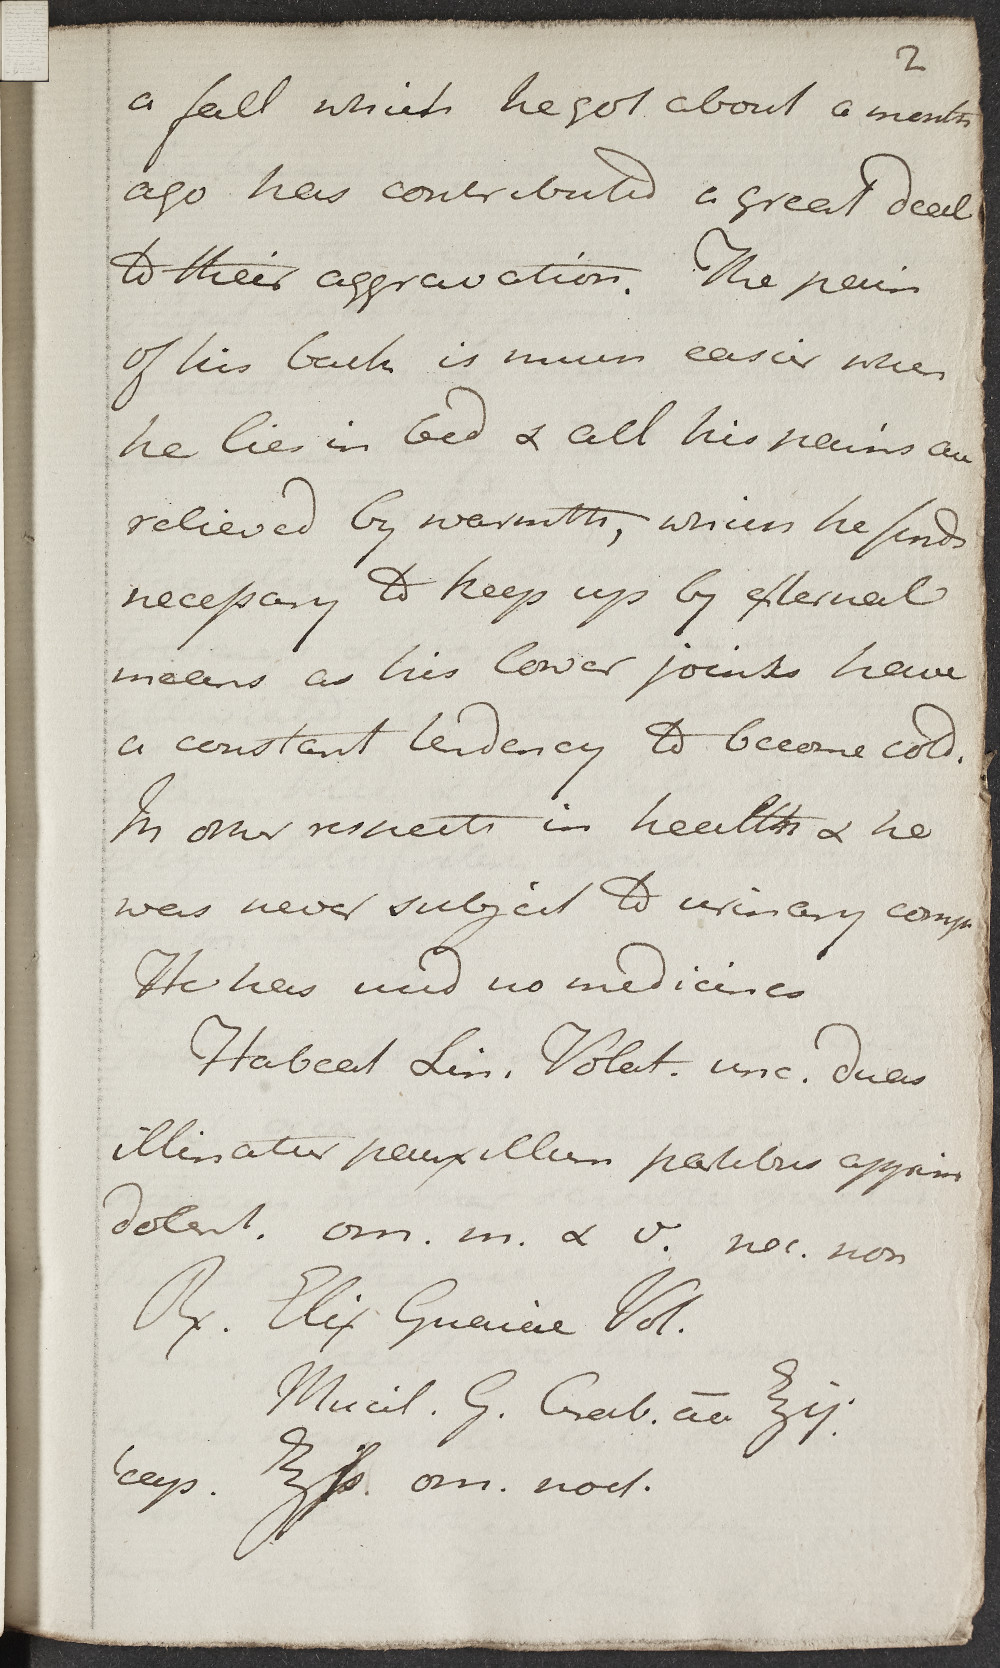 2
a fall which he got about a month
ago has contributed a great deal
to their aggravation. The pain
of his back is much easier when
he lies in bed & all his pains are
relieved by warmth, which he finds
necessary to keep up by external
means as his lower joints have
a constant tendency to become cold.
In other respects in health & he
was never subject to urinary comp
He has used no medicines
Habeat Lin. Volat. unc. duas
illinatur pauxillum partibus apprim
dolent. om. m. & v. nec. non
Rx. Elix Guaiac Vol.
Mucil. G. Arab. āa ℥ij.
cap. ℥ß. om. noct.